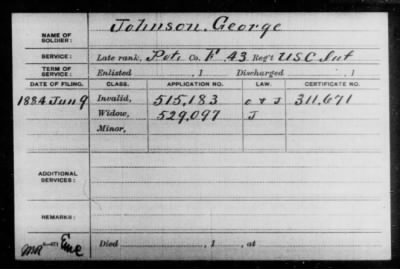 NAME OF SOLDIER: Johnson, George
SERVICE: Late rank, Pvt. Co. F 43 Reg't U S C Inf
TERM OF SERVICE: Enlisted , 1 Discharged , 1
DATE OF FILING. CLASS. APPLICATION NO. LAW. CERTIFICATE NO.
1884 Jun 9 Invalid, 515,183 311,671
Widow, 529,097 J
Minor,
ADDITIONAL SERVICES:
REMARKS:
Died , 1 , at